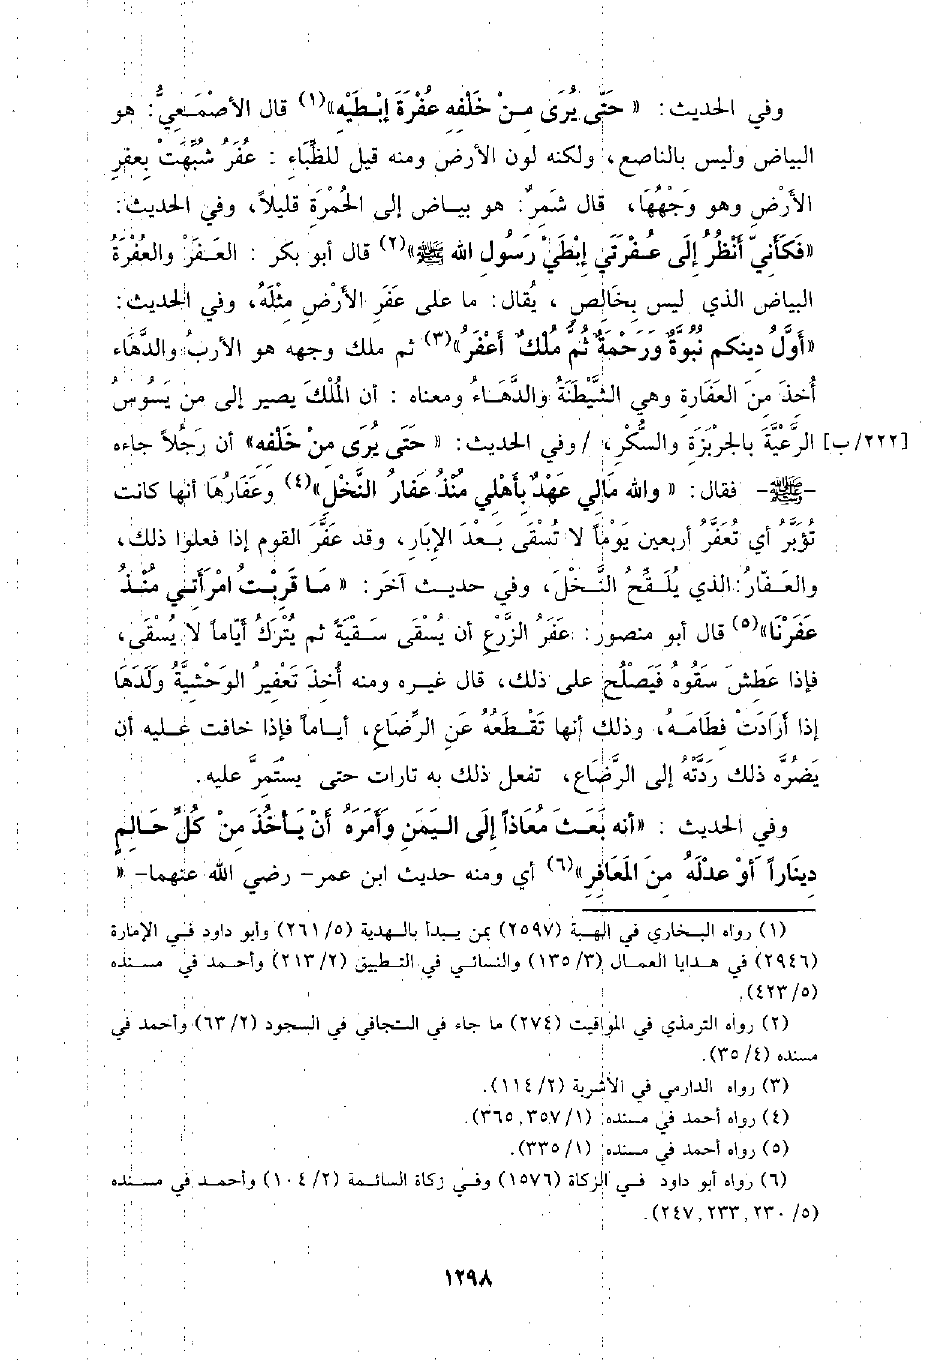 وفي الحديث: « حَتَّى يُرَى مِنْ خَلْفِه عُفْرَة إبْطَيْه»(١) قال الأصْمَعِيُّ: هو
البياض وليس بالناصع، ولكنه لون الأرض ومنه قيل للظِّبَاءِ : عُفَرُ شُبِّهَتْ بِعفرِ
الأرْضِ وهو وَجْهُهَا، قال شَمِرٌ: هو بياض إلى الحُمْرَةِ قليلاً، وفي الحديث:
«فَكَأنِّي أَنْظُرُ إلَى عُفْرَتَي إبْطَيْ رَسُولِ الله ﷺ»(٢) قال أبو بكر : العَفَرُ والعُفْرَةُ
البياض الذي ليس بِخَالِصٍ ، يُقال: ما على عَفَرِ الأرْضِ مِثْلُهُ، وفي الحديث:
«أوَّلُ دينكم نُبُوَّةٌ وَرَحْمَةٌ ثُمَّ مُلْكٌ أَعْفَرُ»(٣) ثم ملك وجهه هو الأربُ والدَّهَاء
أُخِذَ مِنَ العَفَارةِ وهي الشَّيْطَنَةُ والدَّهَاءُ ومعناه : أن المُلْكَ يصير إلى من يَسُوسُ
[٢٢٢/ب] الرَّعْيَّةَ بالجربَزَةِ والسُّكْرِ، / وفي الحديث: « حَتَى يُرَى مِنْ خَلْفِه» أن رَجُلاً جاءه
-ﷺ- فقال: « والله مَالِي عِهْدٌ بِأهْلِي مُنْذُ عفارُ النَّخْلِ»(٤) وعَفَارُهَا أنها كانت
تُؤبَّرُ أي تُعَفَّرُ أربعين يَوْماً لا تُسْقَى بَعْدَ الإبَارِ، وقد عَفَّرَ القوم إذا فعلوا ذلك،
والعَفّارُ: الذي يُلَقِّحُ النَّخْلَ، وفي حديث آخَر: « مَا قَرِبْتُ امْرَأتي مُنْذُ
عَفَرْنَا»(٥) قال أبو منصور: عَفَرُ الزَّرْعِ أن يُسْقَى سَقْيَةً ثم يُتْرَكُ أيّاماً لا يُسْقَى،
فإذا عَطِشَ سَقُوهُ فَيَصْلُح على ذلك، قال غيره ومنه أُخِذَ تَعْفِيرُ الوَحْشِيَّةُ وَلَدَهَا
إذا أرَادَتْ فِطَامَهُ، وذلك أنها تَقْطَعُهُ عَنِ الرِّضَاعِ، أياماً فإذا خافت عليه أن
يَضُرَّه ذلك رَدَّتْهُ إلى الرَّضَاعِ، تفعل ذلك به تارات حتى يستَمِرَّ عليه.
وفي الحديث : «أنه بَعَثَ مُعَاذاً إلَى اليَمَنِ وَأمَرَهُ أنْ يَأخُذَ مِنْ كُلِّ حَالِمٍ
دِينَاراً أوْ عدلَهُ مِنَ المَعَافِرِ»(٦) أي ومنه حديث ابن عمر- رضي الله عنهما- «
(١) رواه البخاري في الهبة (٢٥٩٧) بمن يبدأ بالهدية (٢٦١/٥) وأبو داود في الإمارة
(٢٩٤٦) في هدايا العمال (١٣٥/٣) والنسائي في التطبيق (٢١٣/٢) وأحمد في مسنده
(٤٢٣/٥).
(٢) رواه الترمذي في المواقيت (٢٧٤) ما جاء في التجافي في السجود (٦٣/٢) وأحمد في
مسنده (٣٥/٤).
(٣) رواه الدارمي في الأشربة (١١٤/٢).
(٤) رواه أحمد في مسنده (٣٦٥,٣٥٧/١).
(٥) رواه أحمد في مسنده (٣٣٥/١).
(٦) رواه أبو داود في الزكاة (١٥٧٦) وفي زكاة السائمة (١٠٤/٢) وأحمد في مسنده
(٢٤٧,٢٣٣,٢٣٠/٥).
١٢٩٨